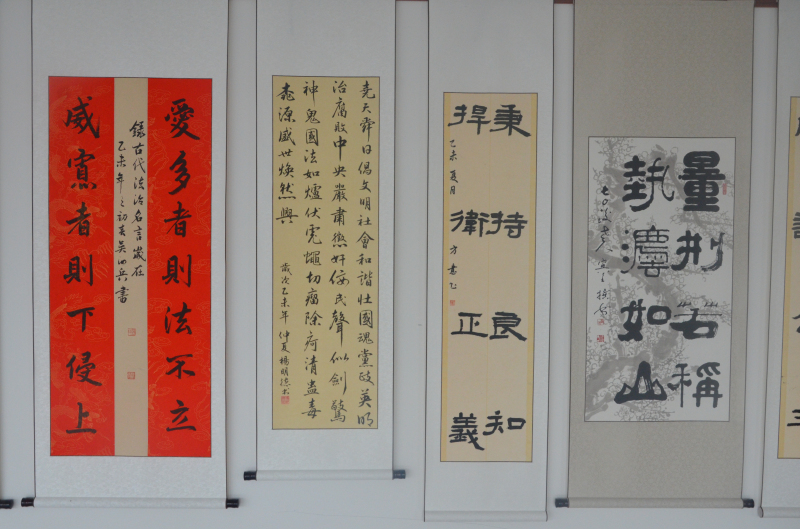 愛多者則法不立
錄古代法治名言歲在
威寡者則下侵上
堯天舜日倡文明社會和諧壯國魂黨政英明
治腐敗中央嚴肅懲奸佞民聲似劍驚
神鬼國法如爐伏虎蠅切瘤除疴清蠱毒
桃源盛世煥然興
歲次乙未年仲夏楊明德書
秉持良知
捍衛正義
乙未夏月
量刑若稱
執灋如山